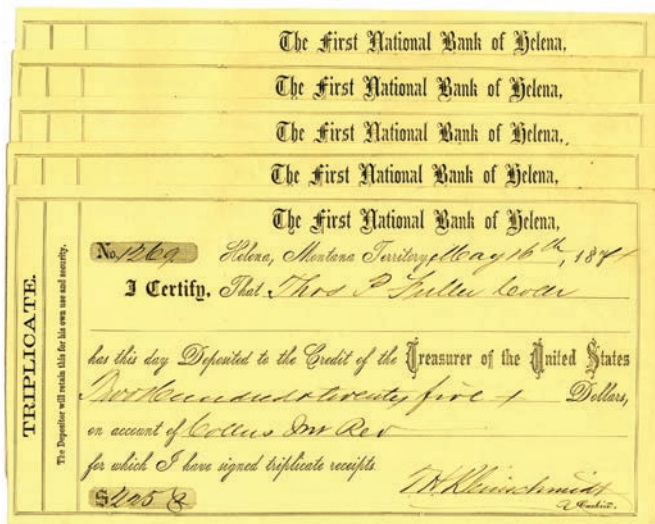 The First National Bank of Helena,
The First National Bank of Helena,
The First National Bank of Helena,
The First National Bank of Helena,
The First National Bank of Helena,
TRIPLICATE.
The Depositor will retain this for his own use and security.
No. 1269 Helena, Montana Territory, May 16th, 187
I Certify, That Thos P Fuller Coller
has this day Deposited to the Credit of the Treasurer of the United States
Two Hundred & twenty five Dollars,
on account of Collns Int Rev
for which I have signed triplicate receipts.
$225
T H Kleinschmidt
Cashier.